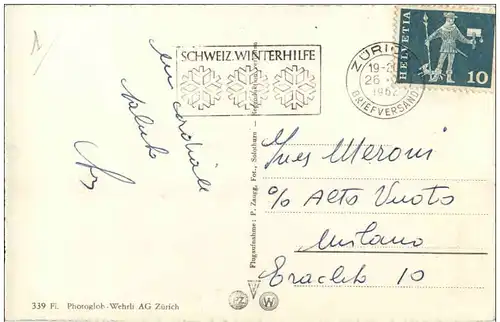 SCHWEIZ. WINTERHILFE
ZÜRICH
19-
26
1962
BRIEFVERSAND
HELVETIA
10
un cordiale
saluto
Yves Meroni
c/o Alto Vuoto
Milano
Eraclito 10
Flugaufnahme: P. Zaugg, Fot., Solothurn
339 Fl. Photoglob-Wehrli AG Zürich
PZ W